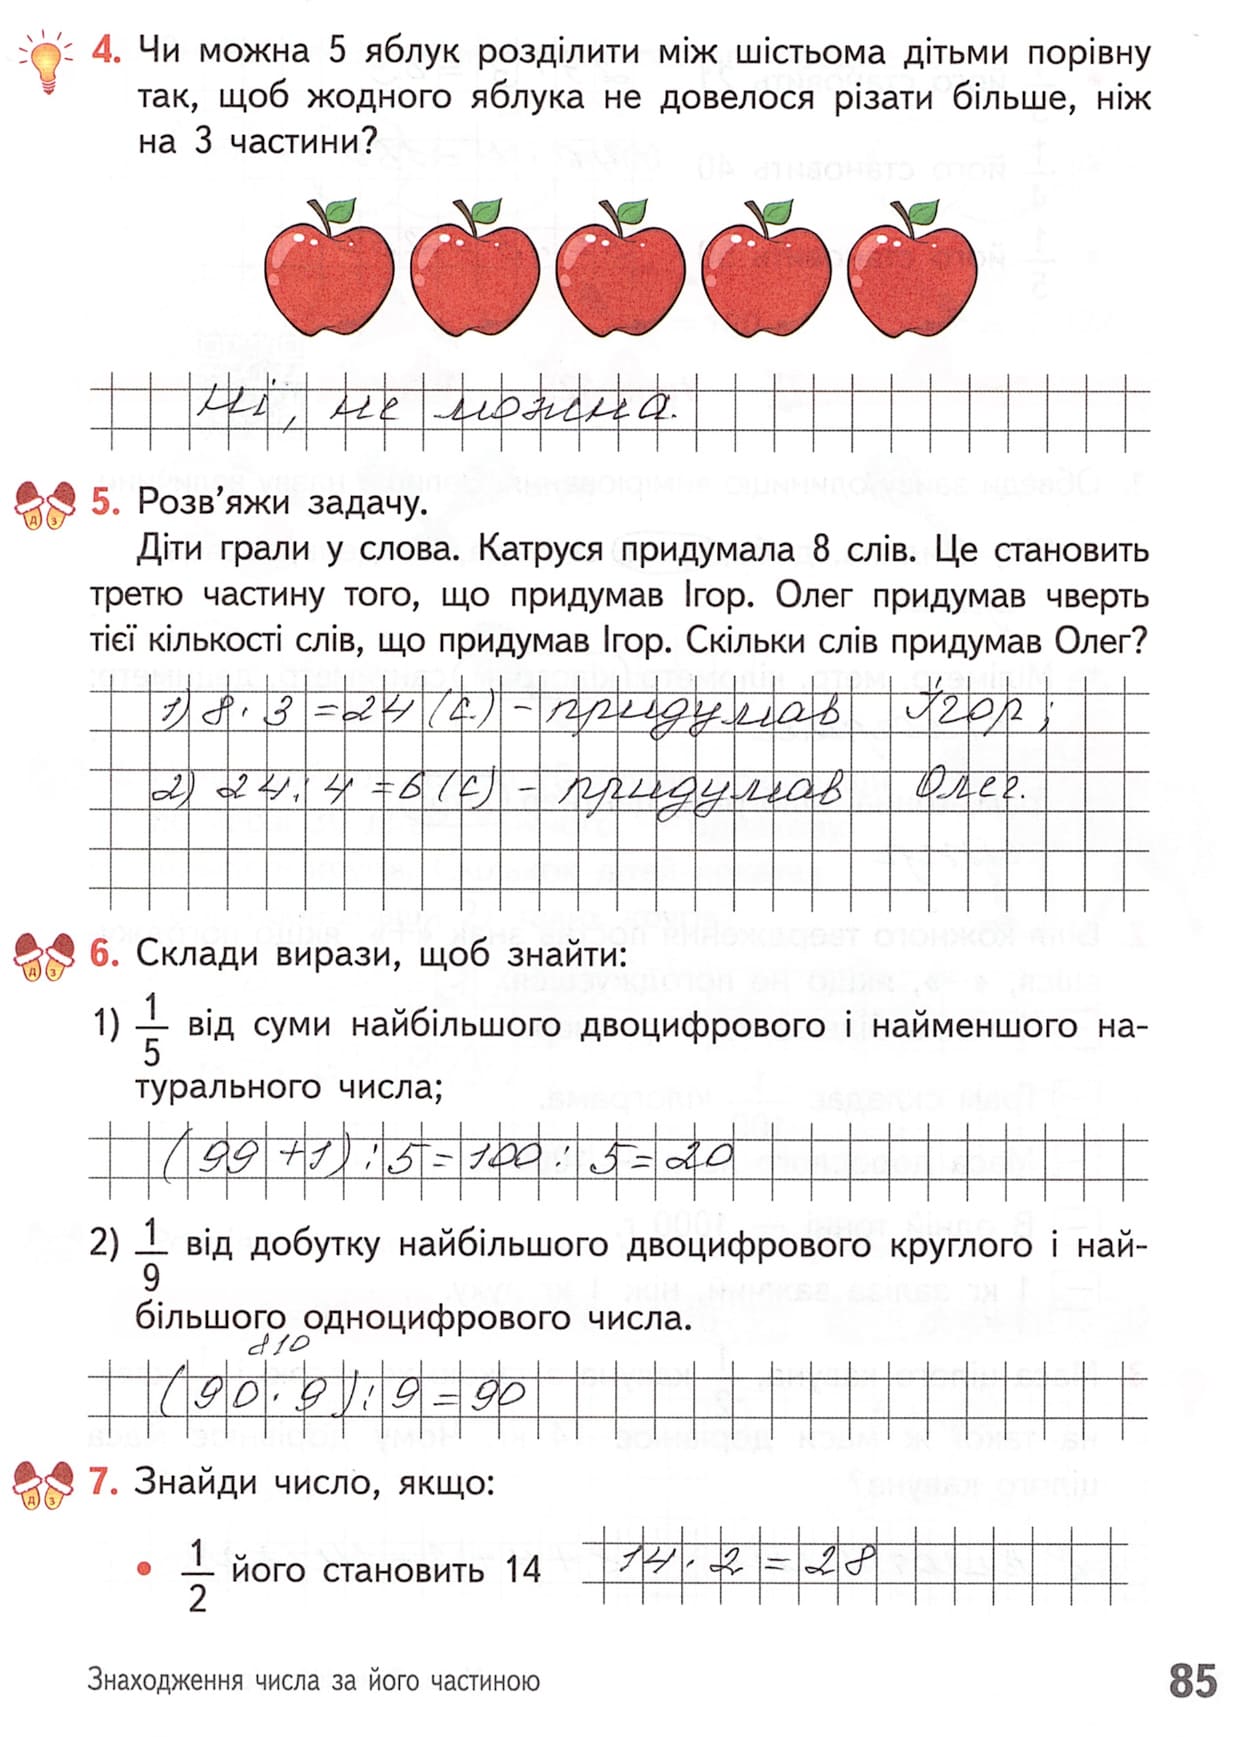 4. Чи можна 5 яблук розділити між шістьома дітьми порівну
так, щоб жодного яблука не довелося різати більше, ніж
на 3 частини?
Ні, не можна.
5. Розв'яжи задачу.
Діти грали у слова. Катруся придумала 8 слів. Це становить
третю частину того, що придумав Ігор. Олег придумав чверть
тієї кількості слів, що придумав Ігор. Скільки слів придумав Олег?
1) 8 · 3 = 24 (с.) – придумав Ігор;
2) 24 : 4 = 6 (с) – придумав Олег.
6. Склади вирази, щоб знайти:
1) 1/5 від суми найбільшого двоцифрового і найменшого на-
турального числа;
(99 + 1) : 5 = 100 : 5 = 20
2) 1/9 від добутку найбільшого двоцифрового круглого і най-
більшого одноцифрового числа.
810
(90 · 9) : 9 = 90
7. Знайди число, якщо:
• 1/2 його становить 14 14 · 2 = 28
Знаходження числа за його частиною 85